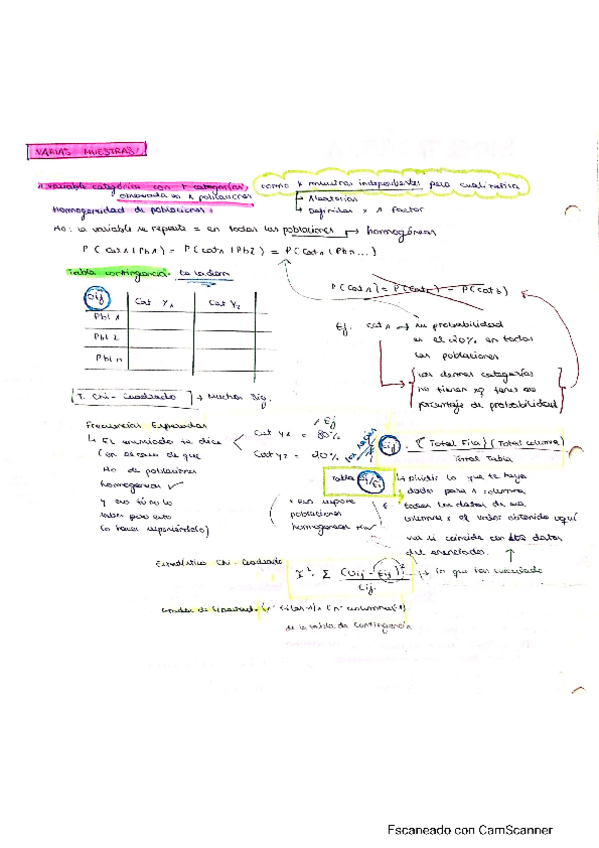 VARIAS MUESTRAS:
1 variable categórica con r categorías, como k muestras independientes para cualitativa
observada en k poblaciones
Aleatorias
Homogeneidad de poblaciones: Definidas x 1 factor
Ho: la variable se reparte = en todas las poblaciones → homogéneas
P(Cat 1 | Pb1) = P(Cat 1 | Pb2) = P(Cat 1 | Pbn...)
Tabla contingencia: te la dan
P(Cat 1) = P(Cat 2) = P(Cat 3)
Oij Cat Y1 Cat Y2
Pbl 1
Pbl 2
Pbl n
Ej. Cat 1 → su probabilidad
es el 20% en todas
las poblaciones
Las demás categorías
no tienen xq tener ese
porcentaje de probabilidad
T. Chi-Cuadrado → Muchos Sig.
Frecuencias Esperadas
El enunciado te dice
Ej
Cat Y1 = 80%
Cat Y2 = 20%
Eij = (Total Fila)(Total columna)
Total Tabla
(en el caso de que
Ho de poblaciones
homogéneas ✓
y eso
Tabla
dividir lo que te haya
dado para 1 columna
poblaciones
homogéneas
todos los datos de esa
columna y el valor obtenido aquí
coincide con los datos
del enunciado.
Estadístico Chi-Cuadrado
X² = Σ (Oij - Eij)²
Eij
→ lo que has calculado
Grados de libertad = (nº filas -1) x (nº columnas -1)
de la tabla de contingencia
Escaneado con CamScanner